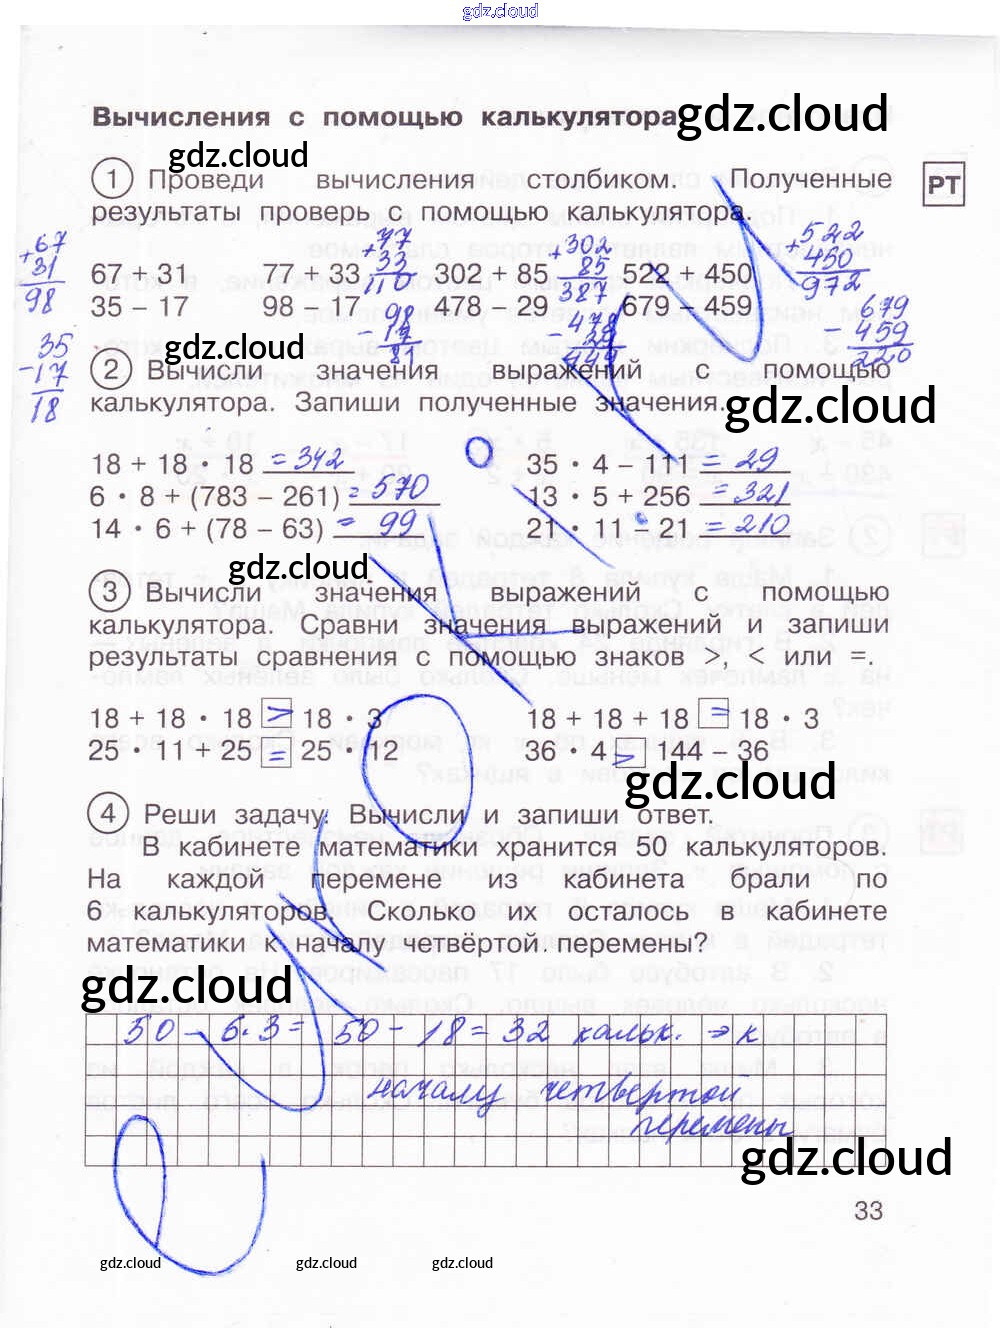 gdz.cloud
Вычисления с помощью калькулятора
gdz.cloud
gdz.cloud
1 Проведи вычисления столбиком. Полученные
РТ
результаты проверь с помощью калькулятора.
67 + 31 77 + 33 302 + 85 522 + 450
35 – 17 98 – 17 478 – 29 679 – 459
+67
31
98
+77
33
110
+302
85
387
+522
450
972
35
-17
18
98
- 17
81
- 478
29
449
679
- 459
220
gdz.cloud
2 Вычисли значения выражений с помощью
калькулятора. Запиши полученные значения.
gdz.cloud
18 + 18 · 18 = 342
35 · 4 – 111 = 29
6 · 8 + (783 – 261) = 570
13 · 5 + 256 = 321
14 · 6 + (78 – 63) = 99
21 · 11 – 21 = 210
gdz.cloud
3 Вычисли значения выражений с помощью
калькулятора. Сравни значения выражений и запиши
результаты сравнения с помощью знаков >, < или =.
18 + 18 · 18 > 18 · 3
18 + 18 + 18 = 18 · 3
25 · 11 + 25 = 25 · 12
36 · 4 > 144 – 36
gdz.cloud
4 Реши задачу. Вычисли и запиши ответ.
В кабинете математики хранится 50 калькуляторов.
На каждой перемене из кабинета брали по
6 калькуляторов. Сколько их осталось в кабинете
математики к началу четвёртой перемены?
gdz.cloud
50 - 6·3 = 50 - 18 = 32 кальк. ⇒ к
началу четвертой
перемены
gdz.cloud
33
gdz.cloud gdz.cloud gdz.cloud